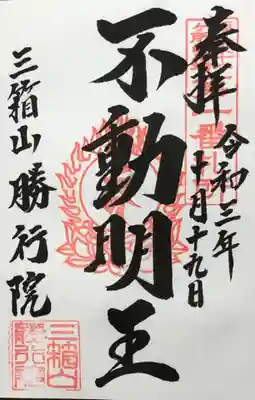 奉拝
令和三年
十月十九日
不動明王
三箱山勝行院
三箱山